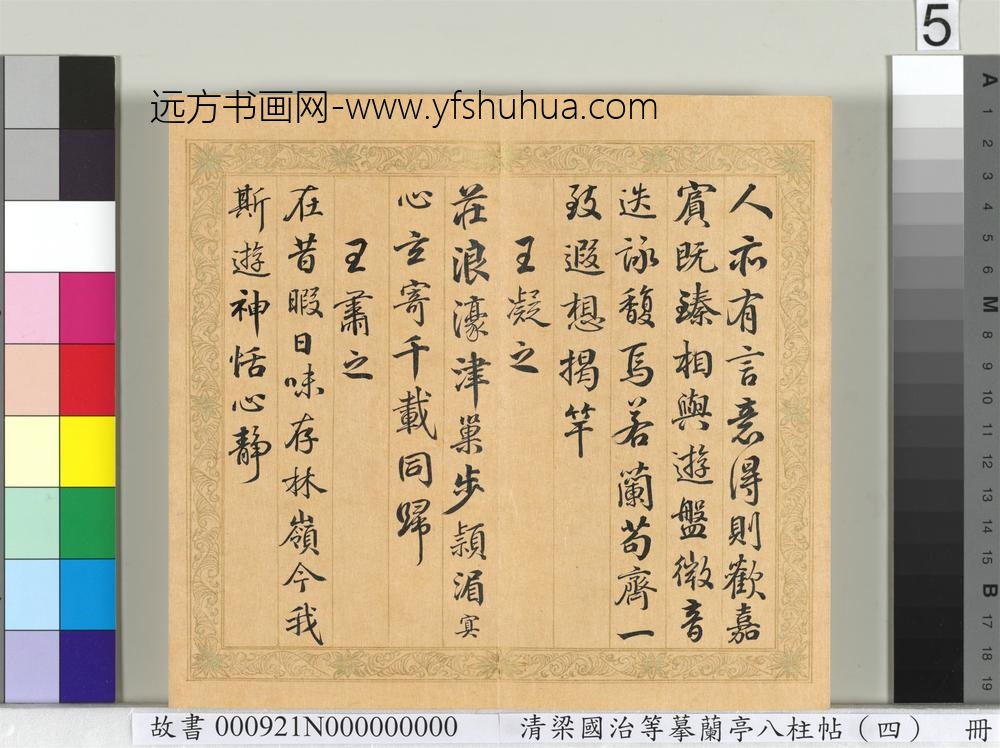 5
远方书画网-www.yfshuhua.com
人亦有言意得則歡嘉
賓既臻相與遊盤微音
迭詠馥焉若蘭苟齊一
致遐想揭竿
王凝之
莊浪濠津巢步潁湄冥
心玄寄千載同歸
王肅之
在昔暇日味存林嶺今我
斯遊神恬心靜
A
1
2
3
4
5
6
M
8
9
10
11
12
13
14
15
B
17
18
19
故書 000921N000000000 清梁國治等摹蘭亭八柱帖（四） 冊